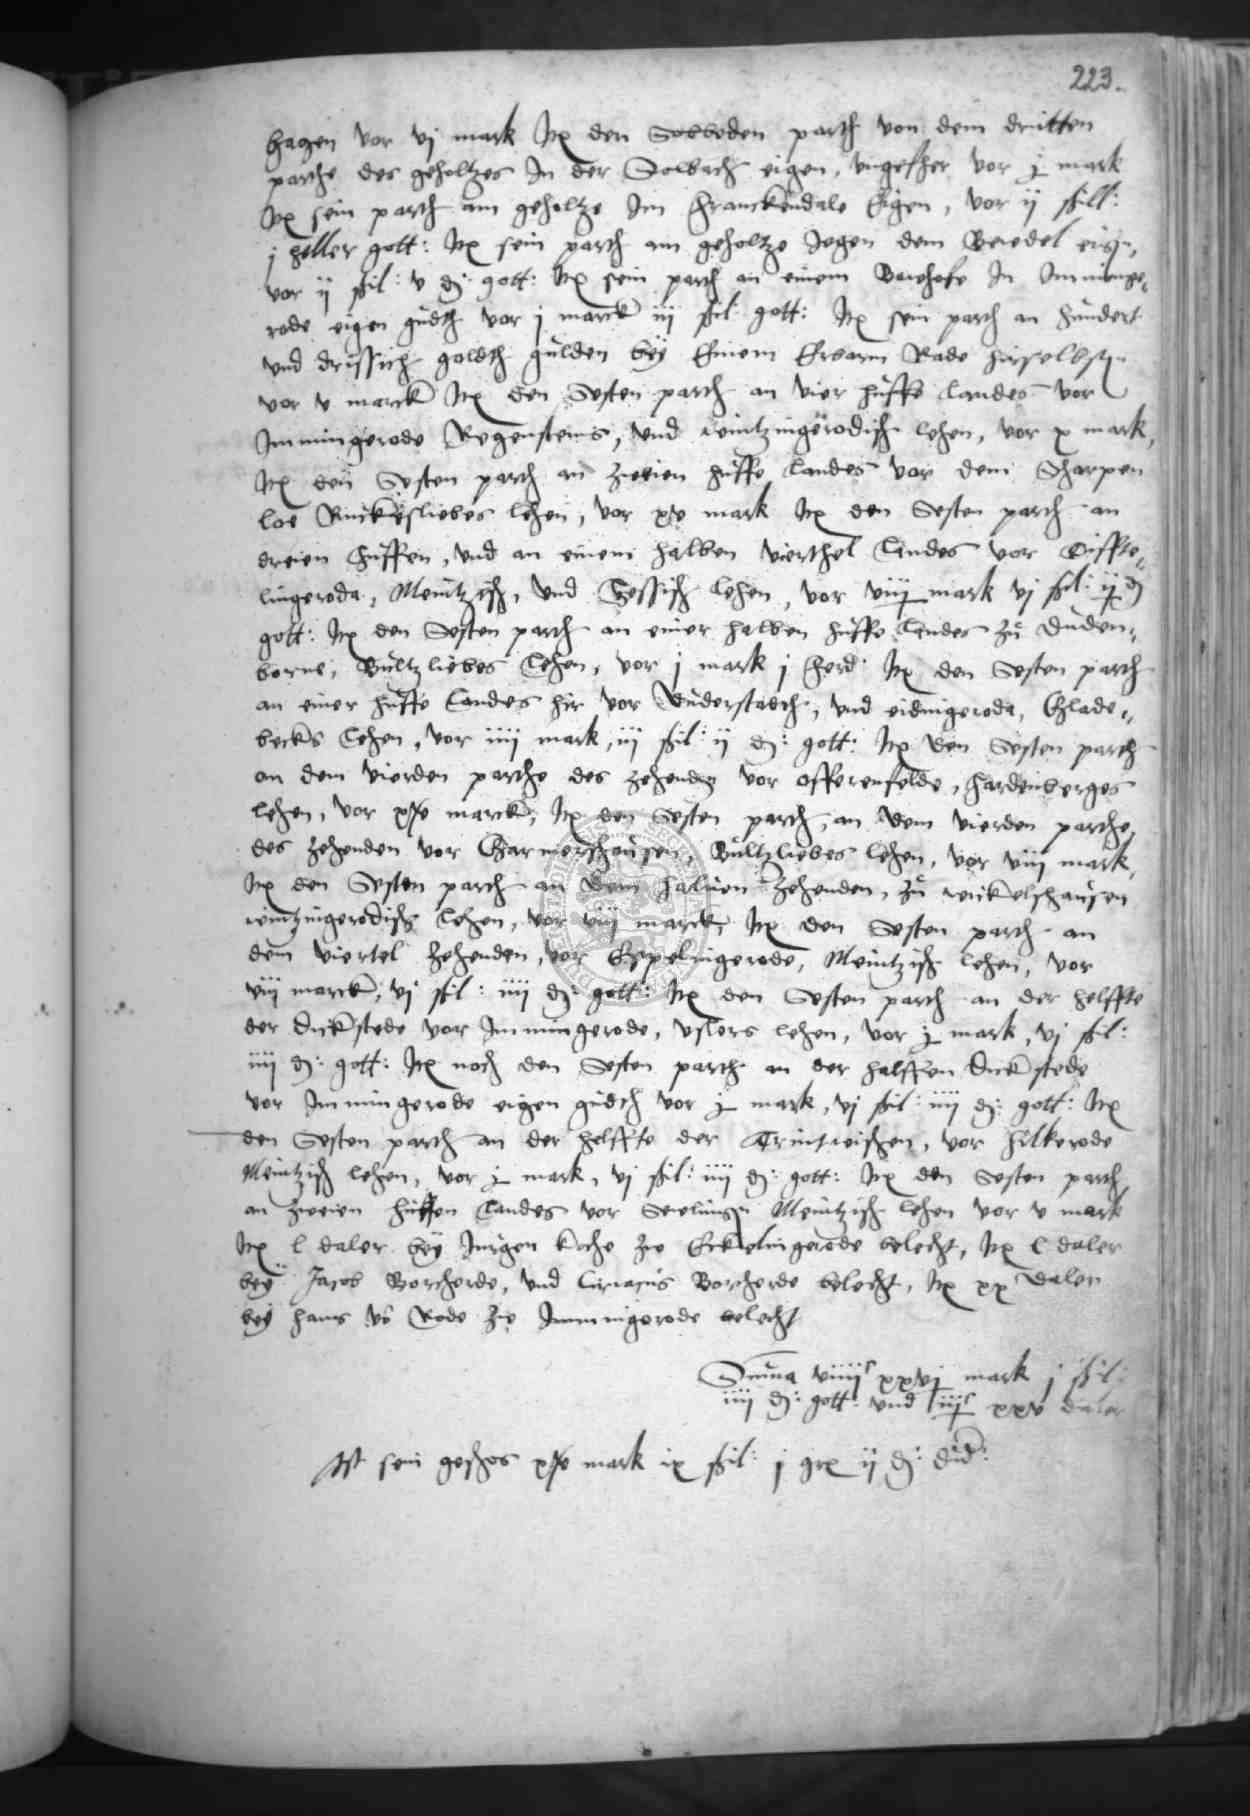 223.
hagen vor vj mark Itx den Sobboden parth von dem dritten
parthe des geholtzes In der Solbach eigen, vngefher vor j mark
Itx sein parth am geholtze Im Franckendale Eigen, vor ij ßill:
j heller gott: Itx sein parth am geholtze Jegen dem
vor ij ßil: v d: gott: Itx sein parth an einem Vorhofe In Imminge„
rode eigen gudth vor j marck iij ßil: gott: Itx sein parth an hundert
vnd drissich goldth gulden bey Einem Erbarn Rade hirselbst
vor v marck Itx den Sesten parth an vier huffe Landes vor
Immingerode Regensteins, vnd wintzingerodisch lehen, vor x mark,
Itx den Sesten parth an zweien huffe Landes vor dem Scharpen
loe Ruckesliebes lehen, vor xv mark Itx den Sesten parth an
dreien huffen, vnd an einem halben vierthel Landes vor Tiffte„
lingeroda, Meintzisch, vnd Hessisch lehen, vor viij mark vj ßil: ij d
gott: Itx den Sesten parth an einer halben huffe Landes zu Duden„
borne, Bultzliebes Lehen, vor j mark j ferd: Itx den Sesten parth
an einer huffe Landes hir vor Duderstadth, vnd eidingeroda, Glade„
becks Lehen, vor iiij mark, iij ßil: ij d: gott: Itx den Sesten parth
an dem vierden parthe des zehenden vor offerenfelde, hardenberges
lehen, vor marck, Itx den Sesten parth, an dem vierden parthe,
des zehenden vor Germershausen, Bultzliebes lehen, vor viij mark,
Itx den Sesten parth an dem haluen Zehenden, zu wickelshausen
wintzingerodisch Lehen, vor viij marck, Itx den Sesten parth an
dem viertel zehenden, vor Espelingerode, Meintzisch lehen, vor
viij marck, vj ßil: iiij d: gott: Itx den Sesten parth an der helffte
der Dickstede vor Immingerode, vslers lehen, vor j mark, vj ßil:
iiij d: gott: Itx noch den Sesten parth an der halffen Dickstede
vor Immingerode eigen gudth vor j mark, vj ßil: iiij d: gott: Itx
den Sesten parth an der helffte der, vor hilkerode
Meintzisch lehen, vor j mark, vj ßil: iiij d: gott: Itx den Sesten parth,
an zweien huffen Landes vor Seulingen Meintzisch lehen vor v mark
Itx l daler bey Jurgen koche zue Eckelingerode belecht, Itx l daler
bey Jacob Borcherde, vnd Ciriacus Borcherde belecht, Itx xx daler
bey hans vō Rode zue Immingerode belecht
Summa viiijc xxvj mark j ßil:
iiij d: gott: vnd iijc xxv daler
Ist sein geschos mark ix ßil: j grx ij d: dud: